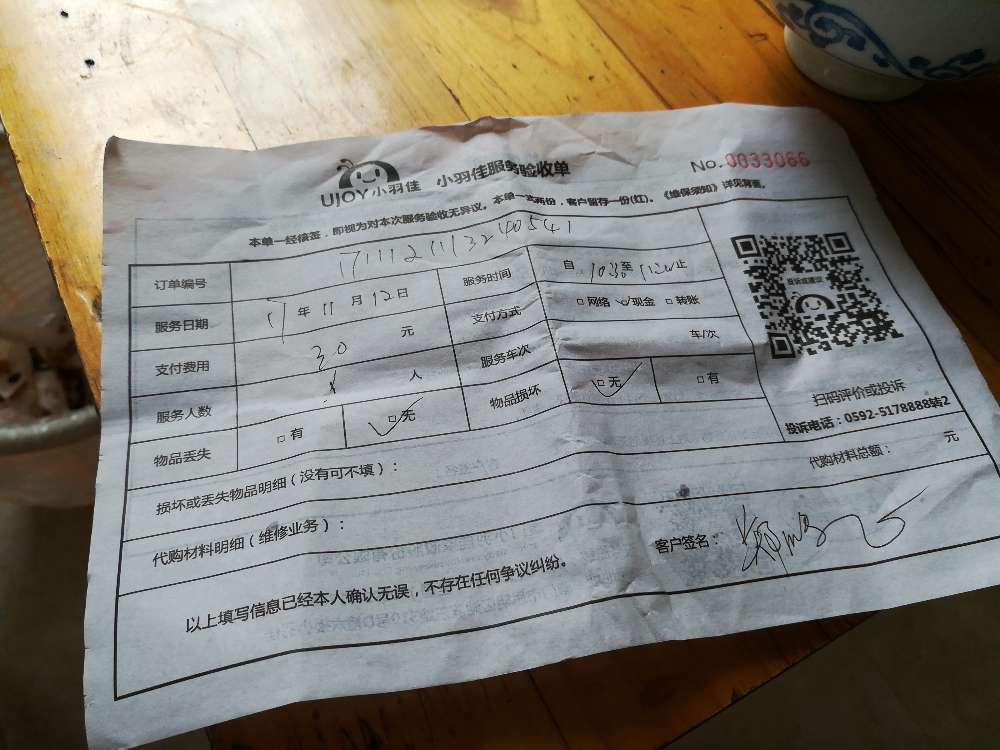 UJOY小羽佳 小羽佳服务验收单 No.0033066
本单一经核签，即视为对本次服务验收无异议。本单一式两份，客户留存一份(红)。《维保须知》详见背面。
订单编号 1711121113240541
服务日期 17年11月12日 服务时间 自1030至1120止
支付费用 30 元 支付方式 □网络 ☑现金 □转账
服务人数 1 人 服务车次 车/次
物品丢失 □有 ☑无 物品损坏 ☑无 □有
投诉或建议
扫码评价或投诉
投诉电话：0592-5178888转2
损坏或丢失物品明细（没有可不填）：
代购材料明细（维修业务）： 代购材料总额： 元
以上填写信息已经本人确认无误，不存在任何争议纠纷。 客户签名：